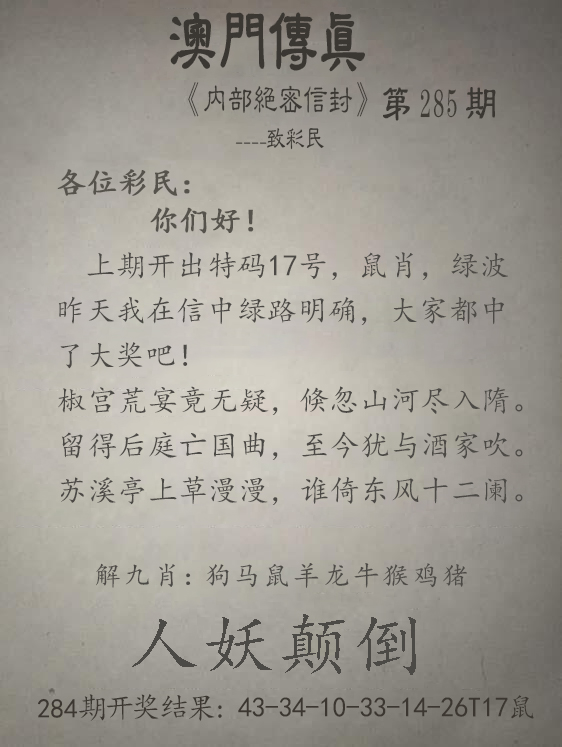 澳門傳眞
《内部絕密信封》第285期
----致彩民
各位彩民：
你们好！
上期开出特码17号，鼠肖，绿波
昨天我在信中绿路明确，大家都中
了大奖吧！
椒宫荒宴竟无疑，倏忽山河尽入隋。
留得后庭亡国曲，至今犹与酒家吹。
苏溪亭上草漫漫，谁倚东风十二阑。
解九肖：狗马鼠羊龙牛猴鸡猪
人妖颠倒
284期开奖结果：43-34-10-33-14-26T17鼠